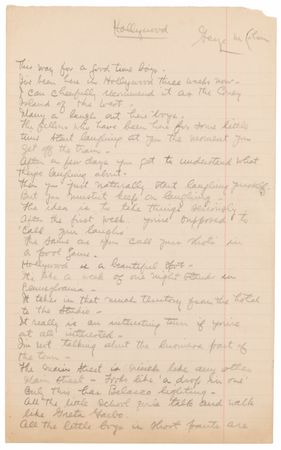 Hollywood
Geo. M. Cohan
This way for a good time boys.
I've been here in Hollywood three weeks now -
I can cheerfully recommend it as the Coney
Island of the West.
Many a laugh out here boys.
The fellows who have been here for some little
time start laughing at you the moment you
get off the train.
After a few days you get to understand what
they're laughing about.
Then you just naturally start laughing yourself.
But you mustn't keep on laughing -
The idea is to take things seriously
After the first week you're supposed to
'call' your laughs
The same as you 'call your shots' in
a pool game.
Hollywood is a beautiful spot -
It's like a week of one night stands in
Pennsylvania -
It takes in that much territory from the hotel
to the Studio -
It really is an interesting town if you're
at all interested -
I'm not talking about the business part of
the town -
The Main Street is much like any other
Main Street - Looks like 'a drop in one'
Only this has Belasco lighting -
All the little school girls talk and walk
like Greta Garbo.
All the little boys in short pants are